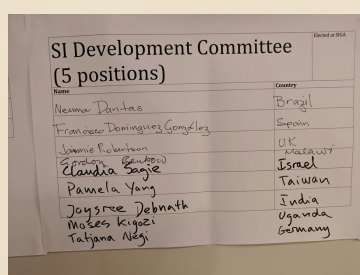 Elected at SIGA
SI Development Committee
(5 positions)
Name Country
Neuma Dantas Brazil
Francisco Dominguez González Spain
Jaimie Robertson U.K
Gordon Benbow Malawi
Claudia Sagie Israel
Pamela Yang Taiwan
Joysree Debnath India
Moses Kigozi Uganda
Tatjana Negi Germany